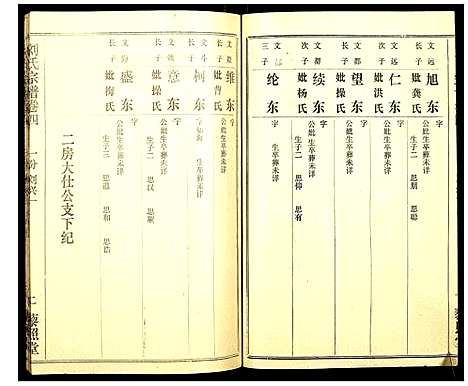 文远
长子
旭东
妣龚氏
字
公妣生卒葬未详
生子二 思朋 思聪
文远
次子
仁东
妣洪氏
字
生卒葬未详
文都
长子
望东
妣操氏
字
公妣生卒葬未详
文都
次子
续东
妣杨氏
字
公妣生卒葬未详
生子二 思仰 思有
三子
纶东
字
生卒葬未详
长子
维东
妣曹氏
字
生卒葬未详
文斗
次子
柯东
字
公妣生卒葬未详
长子
意东
妣操氏
字
公妣生卒葬未详
生子二 思汉
次子
盛东
妣梅氏
字
公妣生卒葬未详
生子三 思温 思和 思浩
二房大仕公支下纪
刘氏宗谱卷四
藜照堂